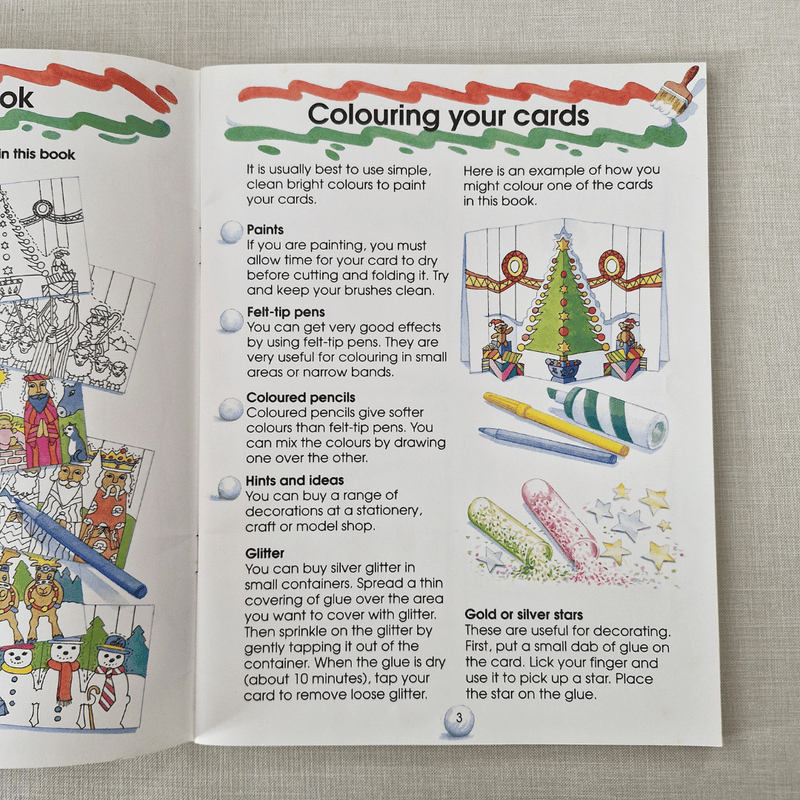 ok
in this book
Colouring your cards
It is usually best to use simple,
clean bright colours to paint
your cards.
Paints
If you are painting, you must
allow time for your card to dry
before cutting and folding it. Try
and keep your brushes clean.
Felt-tip pens
You can get very good effects
by using felt-tip pens. They are
very useful for colouring in small
areas or narrow bands.
Coloured pencils
Coloured pencils give softer
colours than felt-tip pens. You
can mix the colours by drawing
one over the other.
Hints and ideas
You can buy a range of
decorations at a stationery,
craft or model shop.
Glitter
You can buy silver glitter in
small containers. Spread a thin
covering of glue over the area
you want to cover with glitter.
Then sprinkle on the glitter by
gently tapping it out of the
container. When the glue is dry
(about 10 minutes), tap your
card to remove loose glitter.
Here is an example of how you
might colour one of the cards
in this book.
Gold or silver stars
These are useful for decorating.
First, put a small dab of glue on
the card. Lick your finger and
use it to pick up a star. Place
the star on the glue.
3